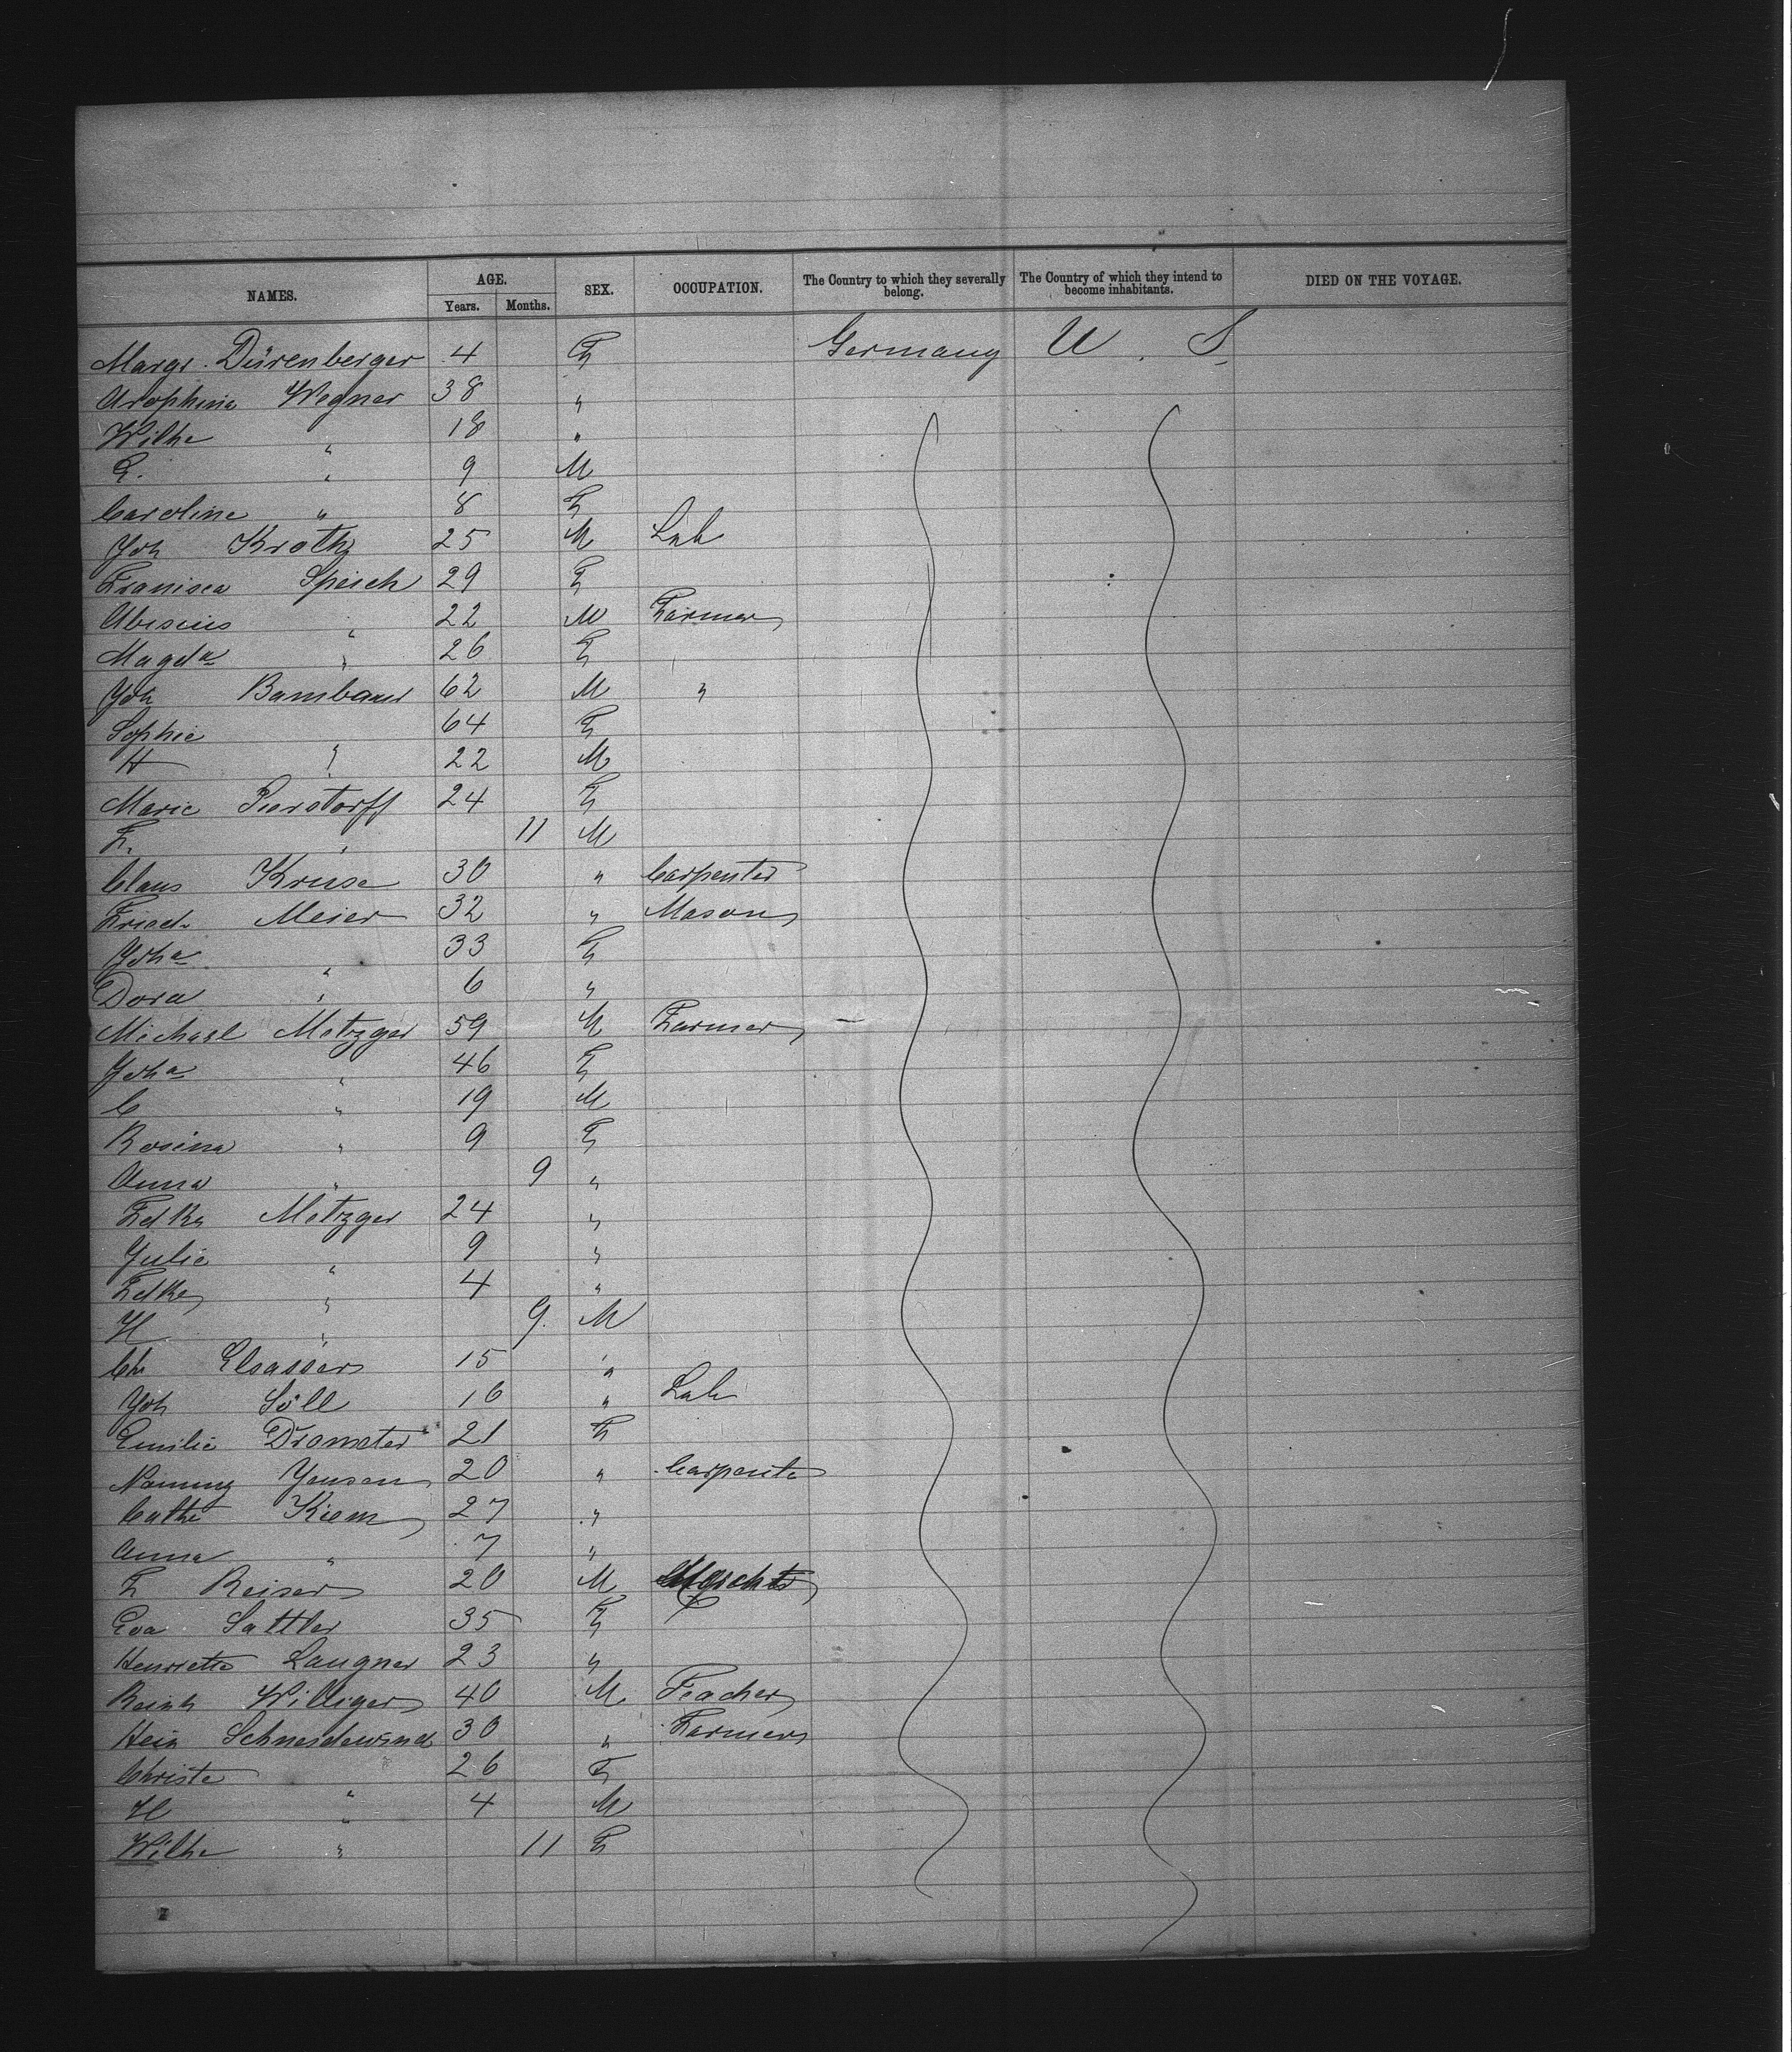 NAMES. AGE. SEX. OCCUPATION. The Country to which they severally belong. The Country of which they intend to become inhabitants. DIED ON THE VOYAGE.
Years. Months.
Margr. Dürenberger 4 F Germany U. S.
Wegner 38 "
Wilhe " 18 "
E. " 9 M
Caroline " 8 F
Joh Kroth 25 M Lab
Franisca Speich 29 F
" 22 M Farmer
Magda " 26 F
Joh Bambauer 62 M "
Sophie 64 F
H " 22 M
Marie Pierstorff 24 F
F. " 11 M
Claus Kruse 30 " Carpenter
Fried. Meier 32 " Mason
Joha " 33 F
Dora " 6 "
Michael Metzger 59 M Farmer
Joha " 46 F
C " 19 M
Rosina " 9 F
Anna " 9 "
Fdke Metzger 24 "
Julie " 9 "
Fdke " 4 "
H " 9. M
Ch Elsasser 15 "
Joh Söll 16 " Lab
Emilie Drometer 21 F
Nommy Jensen 20 " Carpente
Cathe Kiem 27 "
Anna " 7 "
F Reiser 20 M
Eva Sattler 35 F
Henriette Langner 23 "
Reinh Williger 40 M Teacher
Hein Schneidewind 30 " Farmer
Christe " 26 F
H " 4 M
Wilhe " 11 F